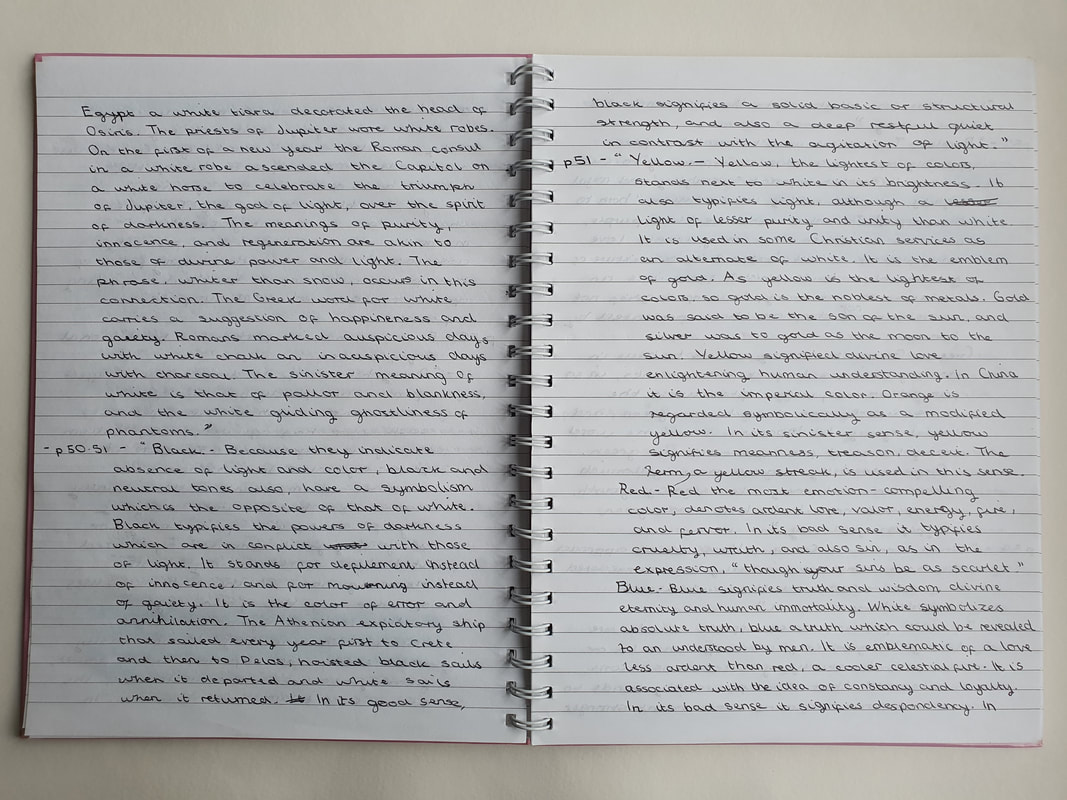 Egypt a white tiara decorated the head of
Osiris. The priests of Jupiter wore white robes.
On the first of a new year the Roman consul
in a white robe ascended the Capitol on
a white horse to celebrate the triumph
of Jupiter, the god of light, over the spirit
of darkness. The meanings of purity,
innocence, and regeneration are akin to
those of divine power and light. The
phrase, whiter than snow, occurs in this
connection. The Greek word for white
carries a suggestion of happineness and
gaiety. Romans marked auspicious days
with white chalk an inauspicious days
with charcoal. The sinister meaning of
white is that of pallor and blankness,
and the white gliding ghostliness of
phantoms."
- p50-51 - "Black.- Because they indicate
absence of light and color, black and
neutral tones also, have a symbolism
which is the opposite of that of white.
Black typifies the powers of darkness
which are in conflict with those
of light. It stands for defilement instead
of innocence, and for mourning instead
of gaiety. It is the color of error and
annihilation. The Athenian expiatory ship
that sailed every year first to Crete
and then to Delos, hoisted black sails
when it departed and white sails
when it returned. In its good sense,
black signifies a solid basic or structural
strength, and also a deep restful quiet
in contrast with the agitation of light."
p51 - "Yellow.- Yellow, the lightest of colors,
stands next to white in its brightness. It
also typifies light, although a
light of lesser purity and unity than white.
It is used in some Christian services as
an alternate of white. It is the emblem
of gold. As yellow is the lightest of
colors, so gold is the noblest of metals. Gold
was said to be the son of the sun, and
silver was to gold as the moon to the
sun. Yellow signified divine love
enlightening human understanding. In China
it is the imperial color. Orange is
regarded symbolically as a modified
yellow. In its sinister sense, yellow
signifies meanness, treason, deceit. The
term, a yellow streak, is used in this sense.
Red- Red the most emotion-compelling
color, denotes ardent love, valor, energy, fire,
and fervor. In its bad sense it typifies
cruelty, wrath, and also sin, as in the
expression, "though your sins be as scarlet"
Blue- Blue signifies truth and wisdom, divine
eternity and human immortality. White symbolizes
absolute truth, blue a truth which could be revealed
to an understood by men. It is emblematic of a love
less ardent than red, a cooler celestial fire. It is
associated with the idea of constancy and loyalty.
In its bad sense it signifies despondency. In